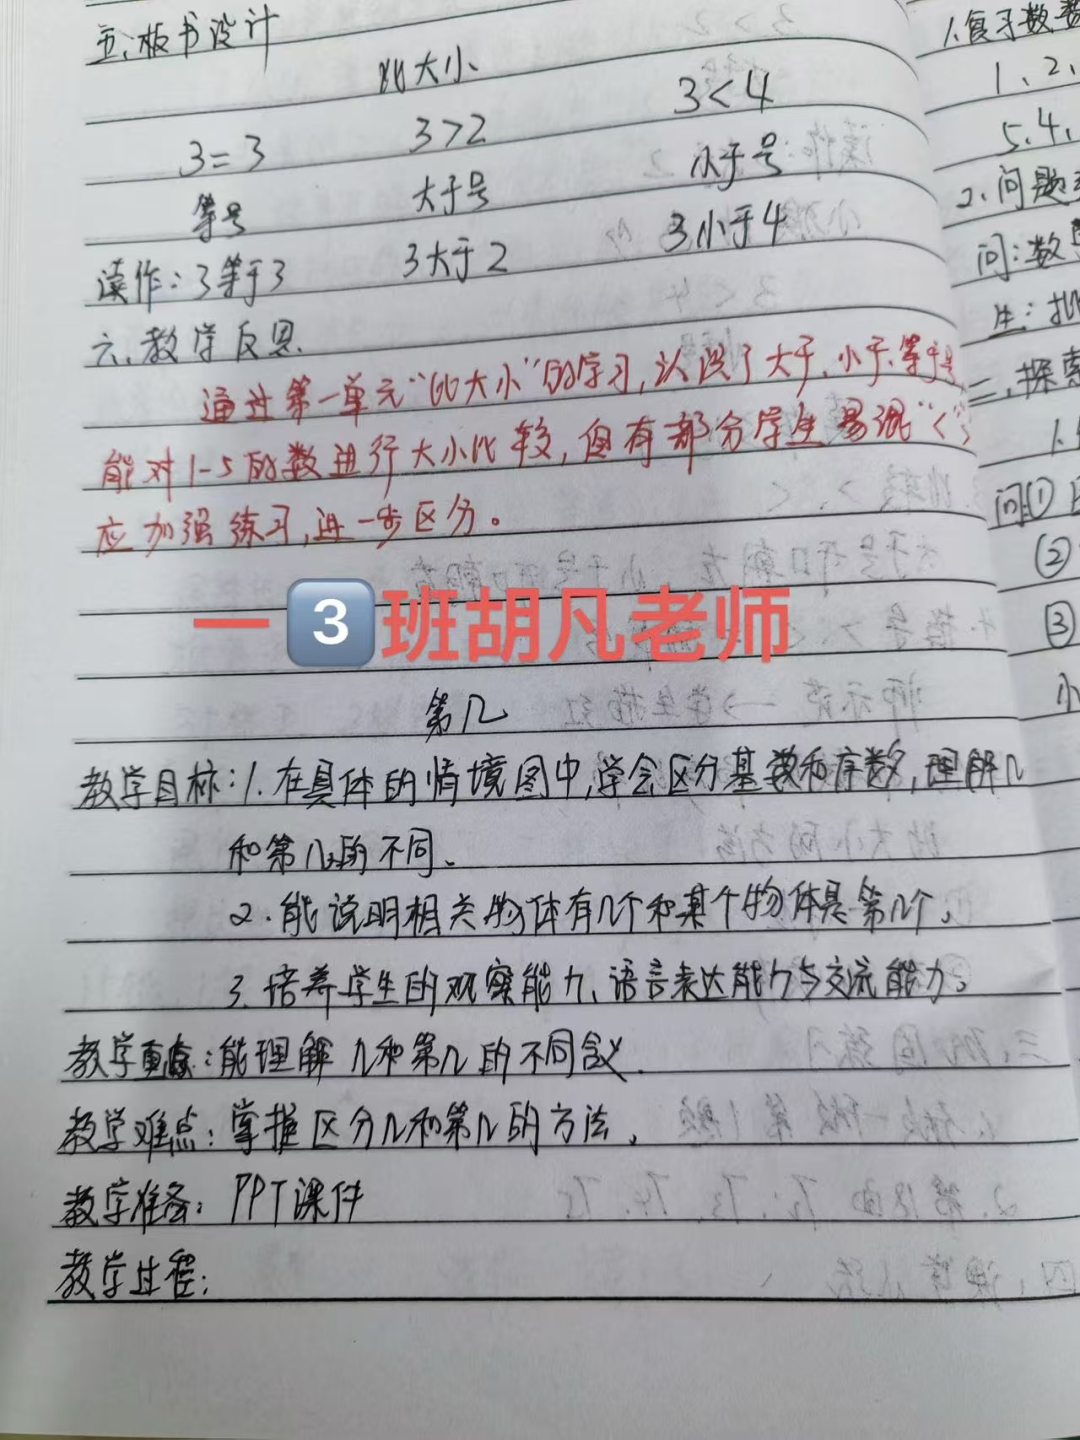 五、板书设计
比大小
3=3 3>2 3<4
等号 大于号 小于号
读作:3等于3 3大于2 3小于4
六、教学反思
通过第一单元“比大小”的学习,认识了大于、小于、等于号
能对1-5的数进行大小比较,但有部分学生易混“<”
应加强练习,进一步区分。
一3班胡凡老师
第几
教学目标:1.在具体的情境图中,学会区分基数和序数,理解几
和第几的不同。
2.能说明相关物体有几个和某个物体是第几个。
3.培养学生的观察能力、语言表达能力与交流能力。
教学重点:能理解几和第几的不同含义.
教学难点:掌握区分几和第几的方法。
教学准备:PPT课件
教学过程:
1.复习数数
1、2、
5.4、
2、问题
问:数
生:
二、探索
1.
问①
②
③
小